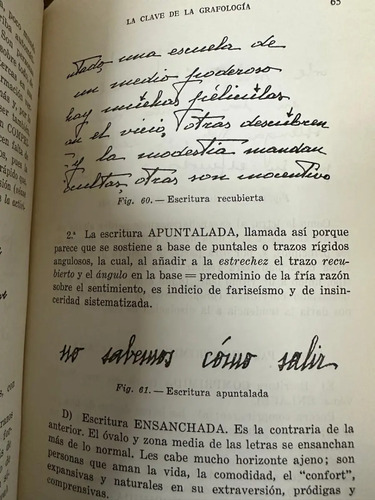 LA CLAVE DE LA GRAFOLOGÍA 65
una escuela de
un medio poderoso
hay muchas películas
en el vicio, otras descubren
y la modestia mandan
ocultas, otras son
Fig. 60. — Escritura recubierta
2.ª La escritura APUNTALADA, llamada así porque
parece que se sostiene a base de puntales o trazos rígidos
angulosos, la cual, al añadir a la estrechez el trazo recu-
bierto y el ángulo en la base = predominio de la fría razón
sobre el sentimiento, es indicio de fariseísmo y de insin-
ceridad sistematizada.
no sabemos cómo salir
Fig. 61. — Escritura apuntalada
D) Escritura ENSANCHADA. Es la contraria de la
anterior. El óvalo y zona media de las letras se ensanchan
más de lo normal. Les cabe mucho horizonte ajeno; son
personas que aman la vida, la comodidad, el "confort",
expansivas y naturales en su extraversión, pródigas y
comprensivas.